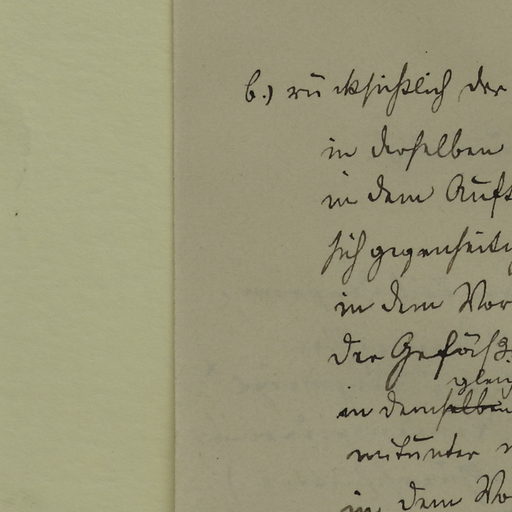 b.) rücksichtlich der
in derselben
in dem Auft
sich gegenseitig
in dem Vor
der Gefäß
gleic
in demselben
mitunter
in dem Vo